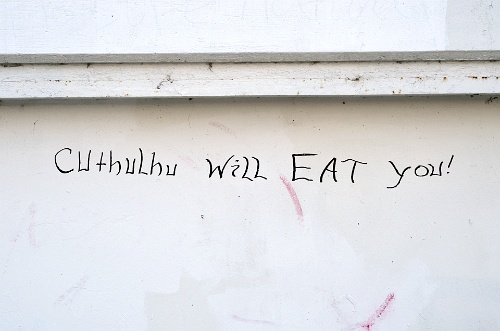 Cuthulhu Will EAT you!